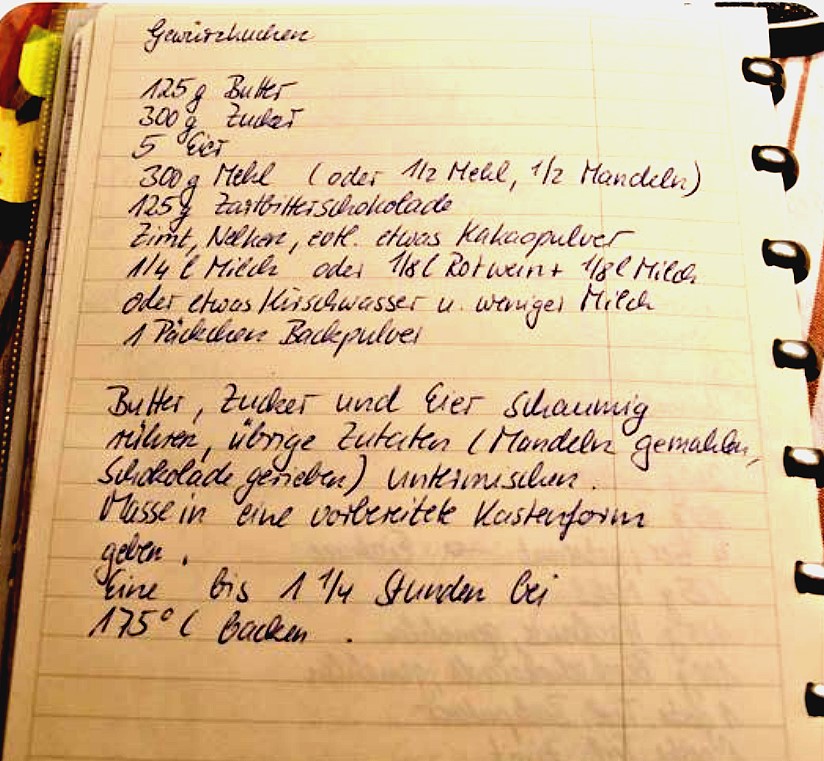 Gewürzkuchen
125g Butter
300g Zucker
5 Eier
300g Mehl (oder 1/2 Mehl, 1/2 Mandeln)
125g Zartbitterschokolade
Zimt, Nelken, evtl. etwas Kakaopulver
1/4 l Milch oder 1/8 l Rotwein + 1/8 l Milch
oder etwas Kirschwasser u. weniger Milch
1 Päckchen Backpulver
Butter, Zucker und Eier schaumig
rühren, übrige Zutaten (Mandeln gemahlen,
Schokolade gerieben) untermischen.
Masse in eine vorbereitete Kastenform
geben.
Eine bis 1 1/4 Stunden bei
175°C backen.